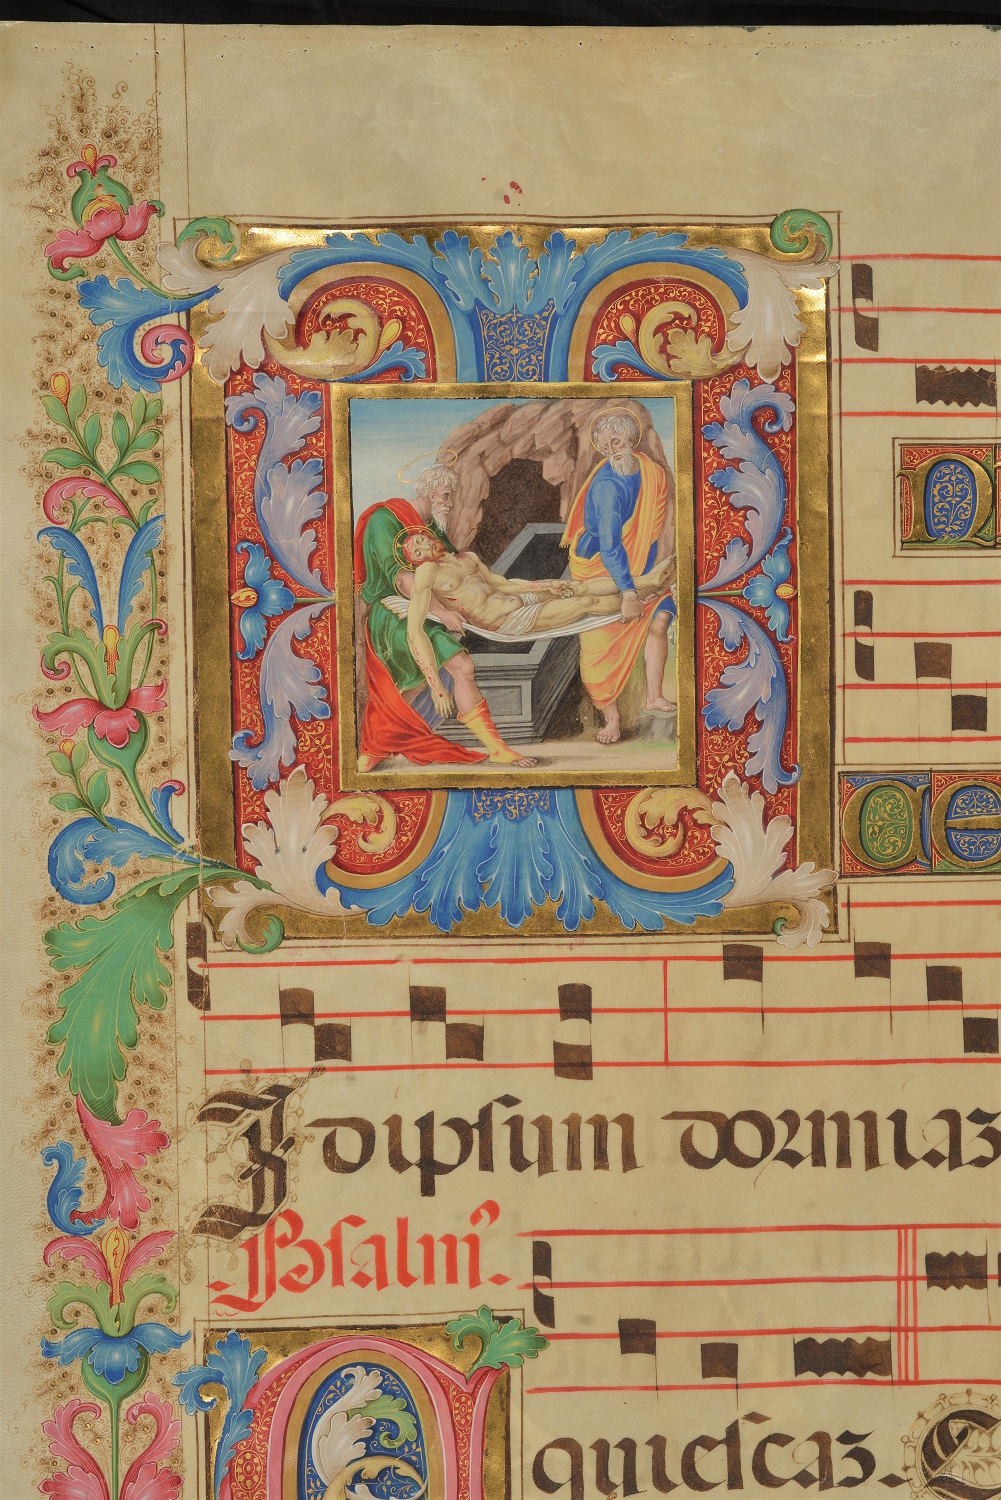 N
Idipsum dormiaz
Psalmꝰ.
quiescaz.